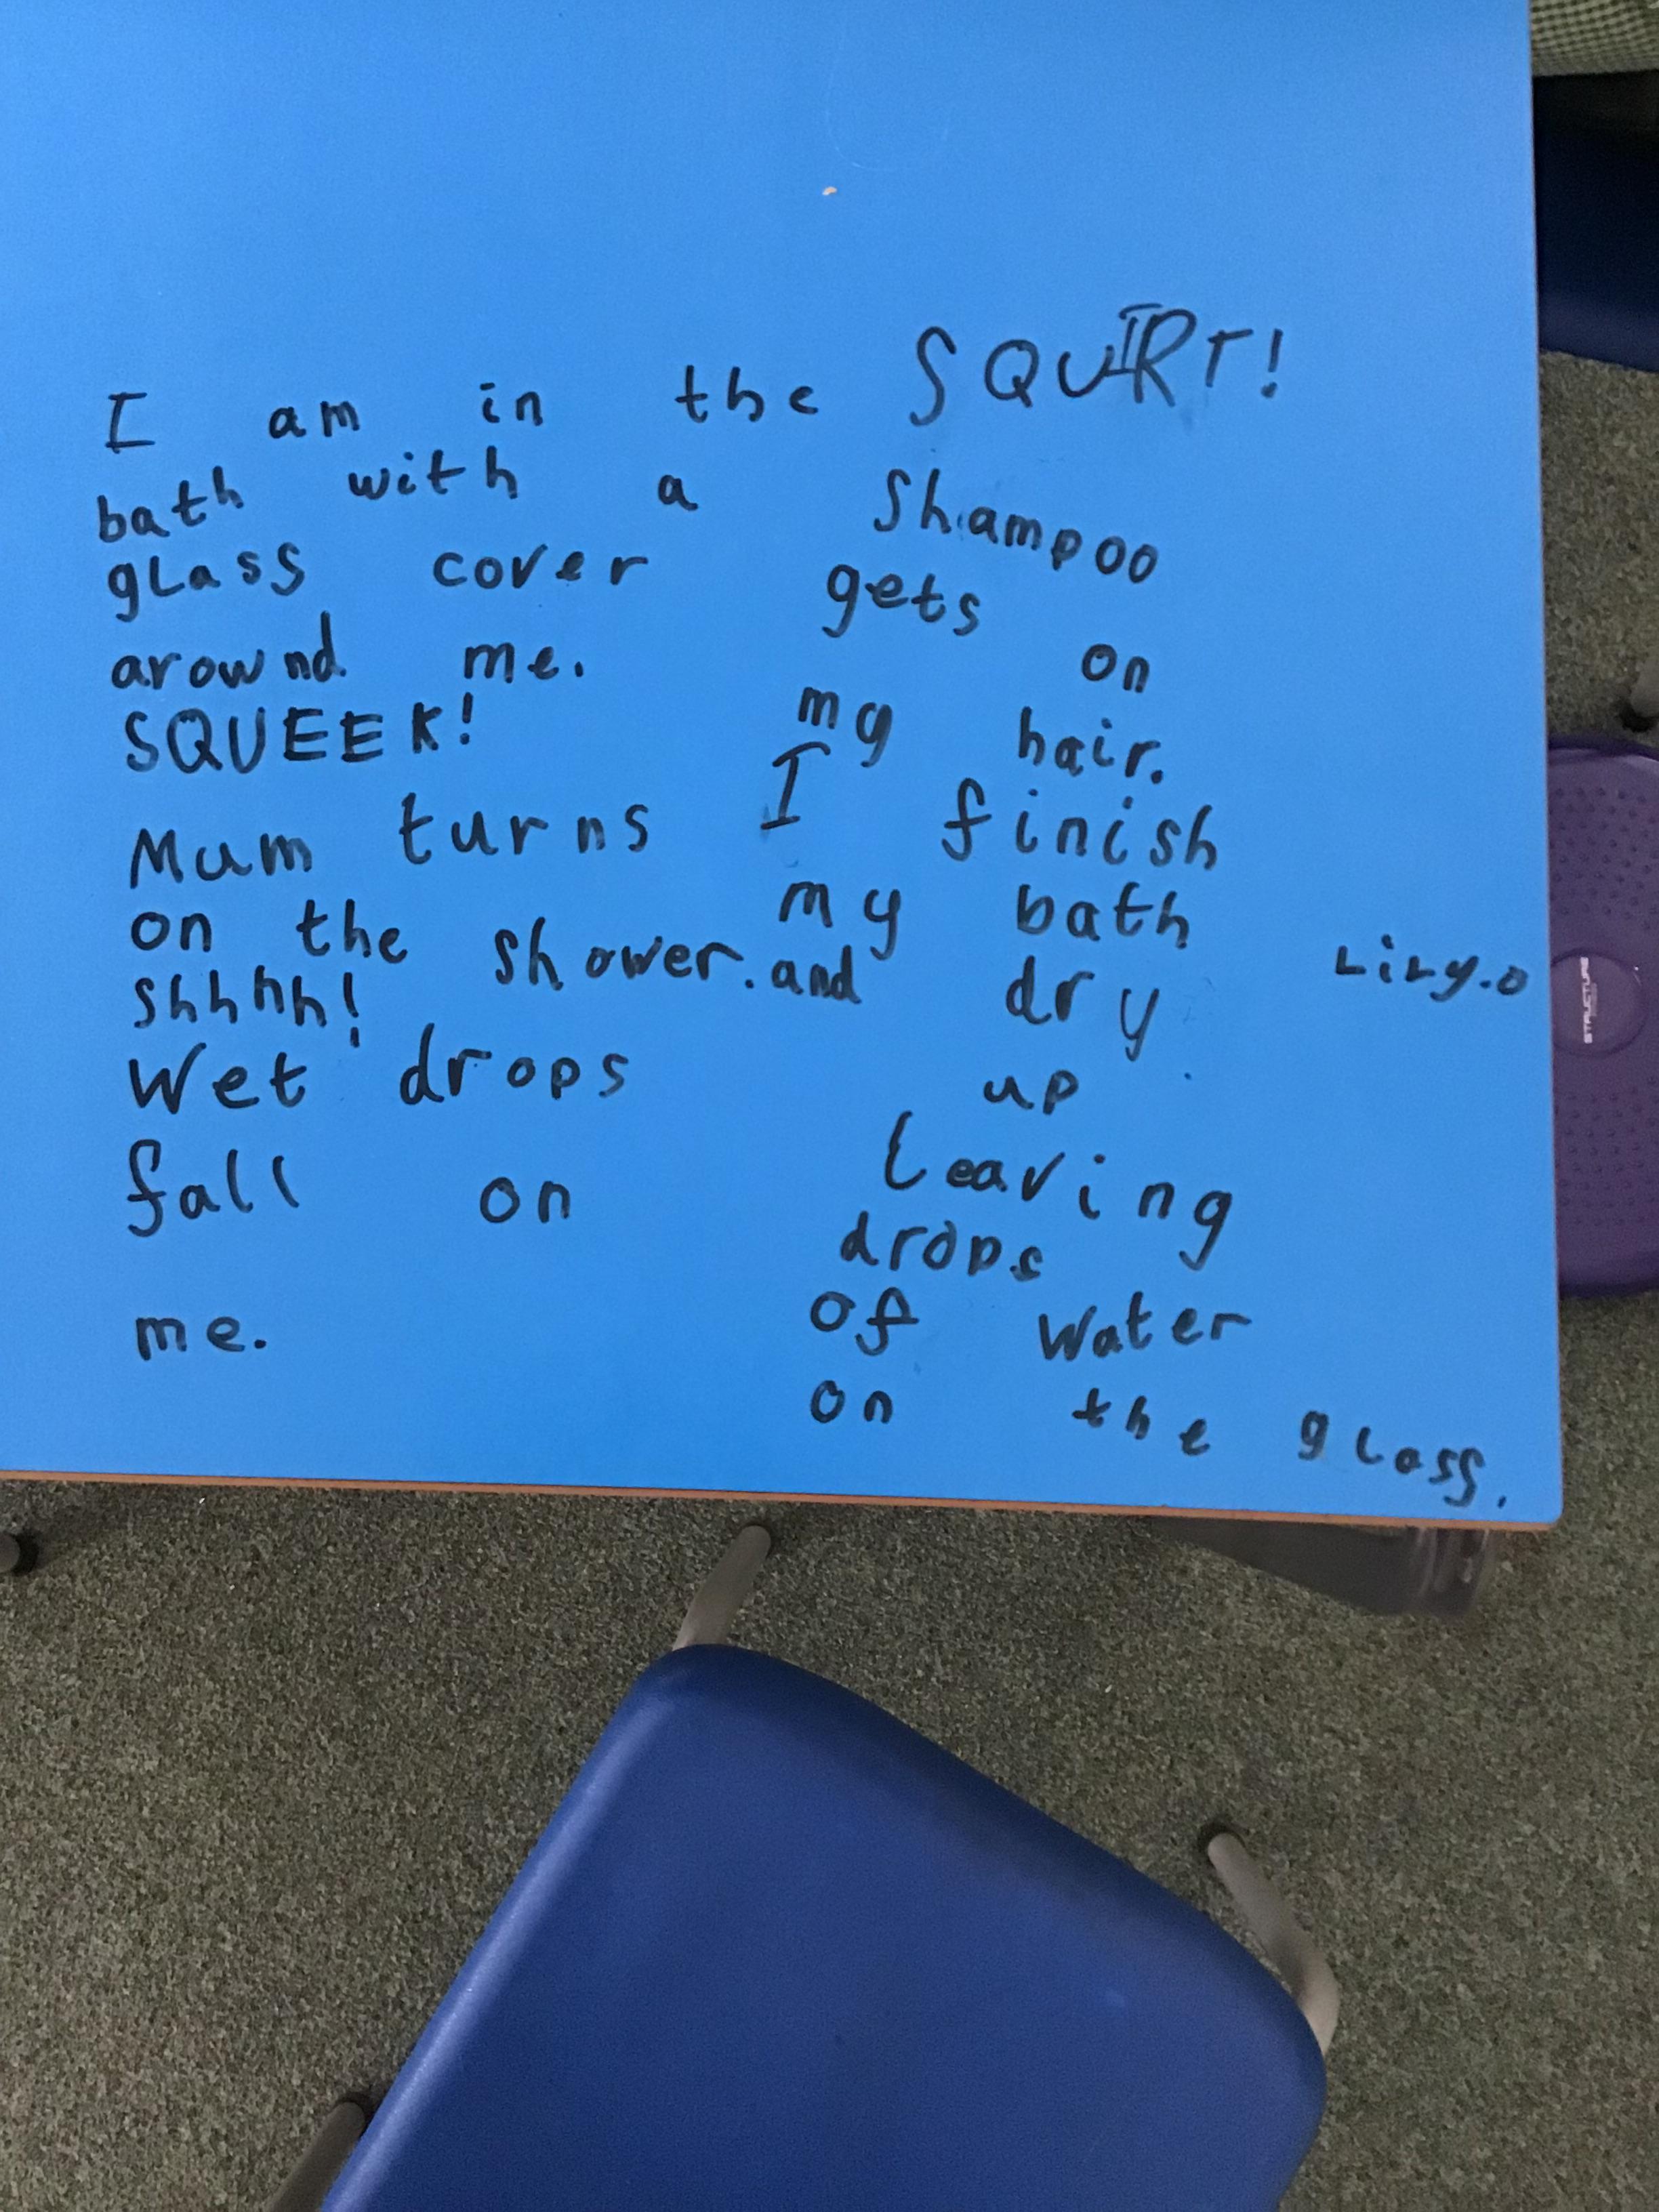 I am in the
bath with a
glass cover
arownd me.
SQUEEK!
Mum turns
on the shower.
shhhh!
Wet drops
fall on
me.
SQUIRT!
Shampoo
gets on
my hair.
I finish
my bath
and dry
up
leaving
drops
of water
on the glass.
Lily.O
STRUCTURE